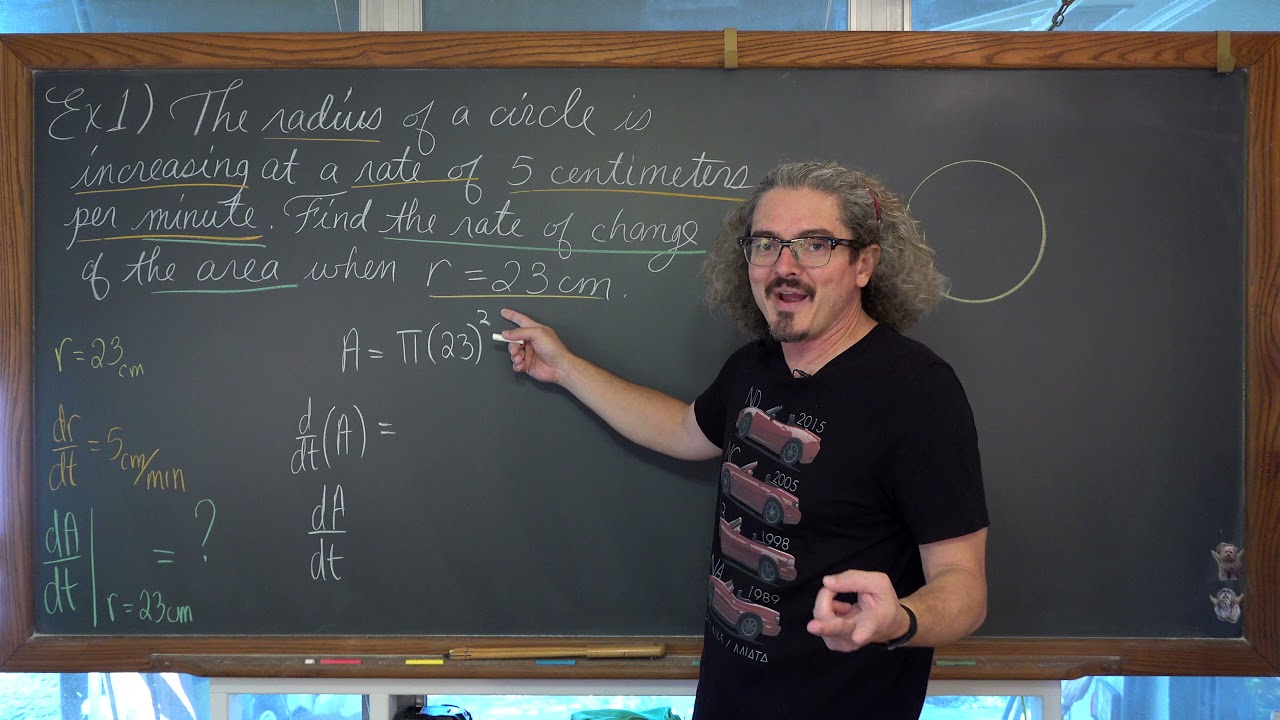 Ex1) The radius of a circle is
increasing at a rate of 5 centimeters
per minute. Find the rate of change
of the area when r = 23 cm.
r = 23 cm
A = π(23)²
dr/dt = 5 cm/min
d/dt (A) =
dA/dt | r = 23 cm = ?
dA/dt
ND 2015
NC 2005
1998
NA 1989
MIATA